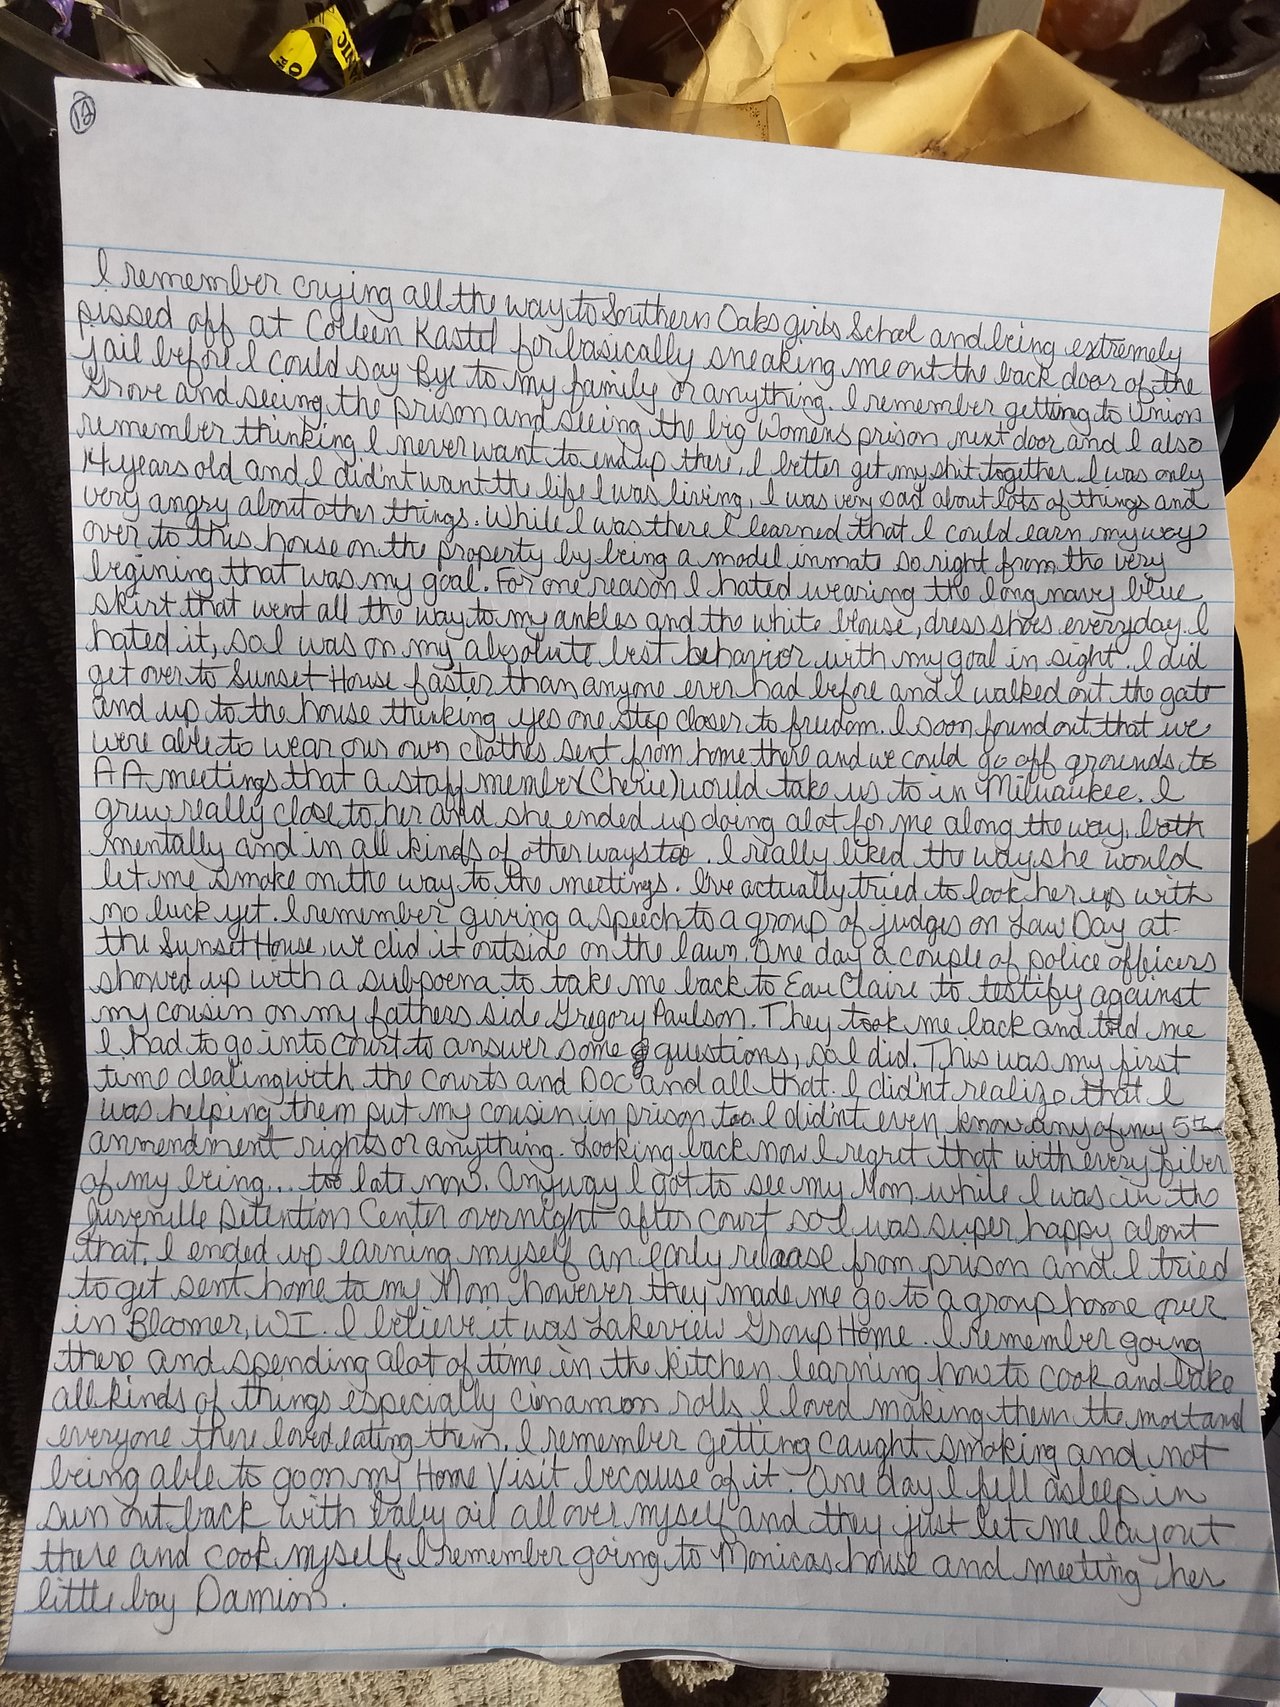 12
I remember crying all the way to Southern Oaks girls School and being extremely
pissed off at Colleen Kastel for basically sneaking me out the back door of the
jail before I could say Bye to my family or anything. I remember getting to Union
Grove and seeing the prison and seeing the big Womens prison next door and I also
remember thinking I never want to end up there, I better get my shit together. I was only
14 years old and I didn't want the life I was living, I was very sad about lots of things and
very angry about other things. While I was there I learned that I could earn my way
over to this house on the property by being a model inmate so right from the very
begining that was my goal. For one reason I hated wearing the long navy blue
skirt that went all the way to my ankles and the white blouse, dress shoes everyday. I
hated it, so I was on my absolute best behavior with my goal in sight. I did
get over to Sunset House faster than anyone ever had before and I walked out the gate
and up to the house thinking yes one step closer to freedom. I soon found out that we
were able to wear our own clothes sent from home there and we could go off grounds to
AA meetings that a staff member (Cherie) would take us to in Milwaukee. I
grew really close to her and she ended up doing alot for me along the way, both
mentally and in all kinds of other ways too. I really liked the way she would
let me smoke on the way to the meetings. I've actually tried to look her up with
no luck yet. I remember giving a speech to a group of judges on Law Day at
the Sunset House, we did it outside on the lawn. One day a couple of police officers
showed up with a subpoena to take me back to Eau Claire to testify against
my cousin on my fathers side Gregory Paulson. They took me back and told me
I had to go into court to answer some questions, so I did. This was my first
time dealing with the courts and DOC and all that. I didn't realize that I
was helping them put my cousin in prison too. I didn't even know any of my 5th
ammendment rights or anything. Looking back now I regret that with every fiber
of my being... too late now. Anyway I got to see my Mom while I was in the
Juvenille Detention Center overnight after court so I was super happy about
that. I ended up earning myself an early release from prison and I tried
to get sent home to my Mom however they made me go to a group home over
in Bloomer, WI. I believe it was Lakeview Group Home. I remember going
there and spending alot of time in the kitchen learning how to cook and bake
all kinds of things especially cinnamon rolls I loved making them the most and
everyone there loved eating them. I remember getting caught smoking and not
being able to go on my Home Visit because of it. One day I fell asleep in
sun out back with baby oil all over myself and they just let me lay out
there and cook myself. I remember going to Monicas house and meeting her
little boy Damion.